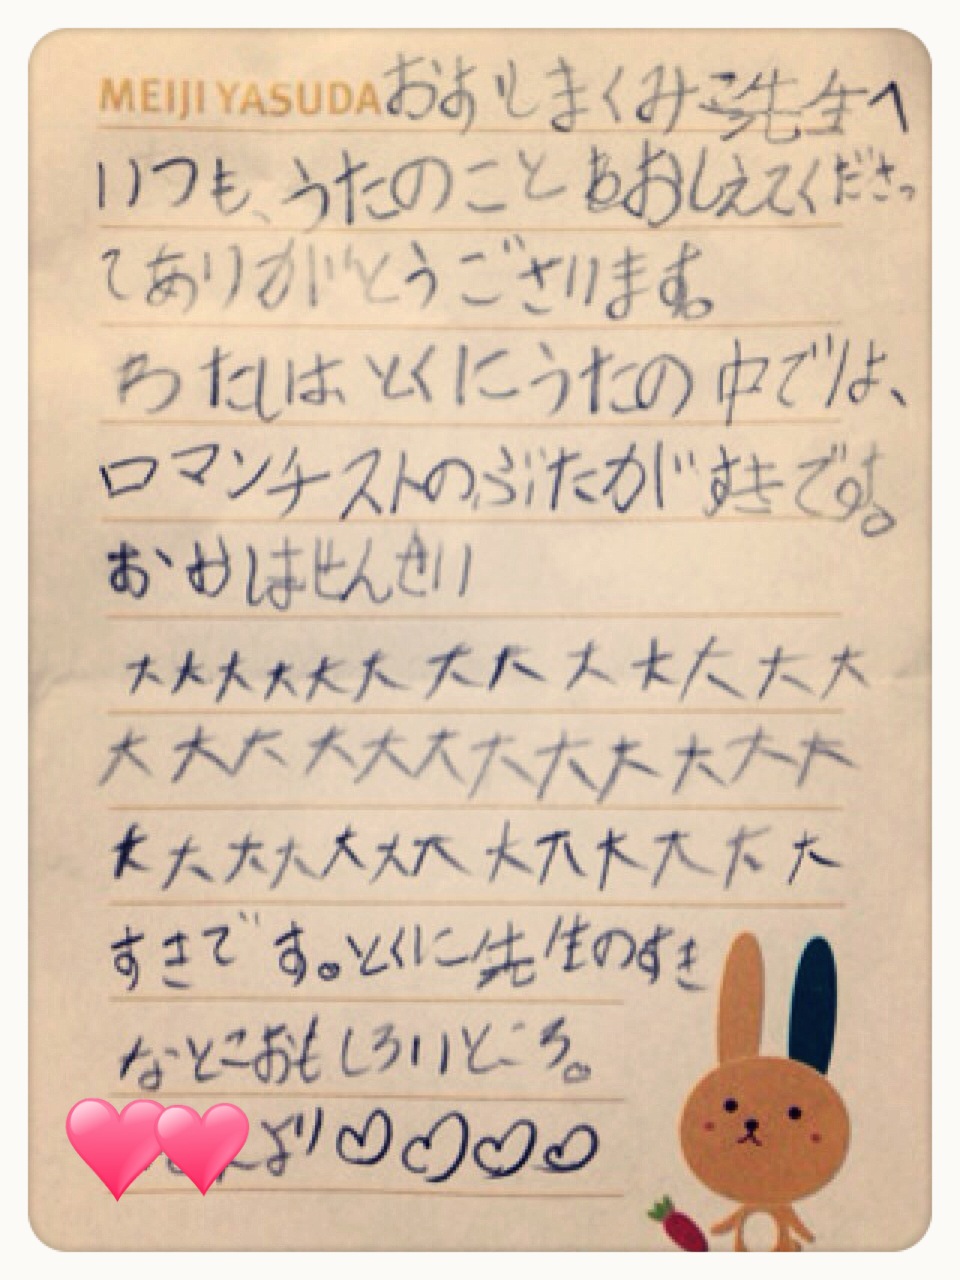 MEIJI YASUDA おおしまくみこ先生へ
いつも、うたのことをおしえてくださっ
てありがとうございます。
わたしは、とくにうたの中では、
ロマンチストのぶたがすきです。
おかめはせんせい
大大大大大大大大大大大大大
大大大大大大大大大大大大
大大大大大大大大大大大大大
すきです。とくに先生のすき
なとこおもしろいところ。
より♡♡♡♡